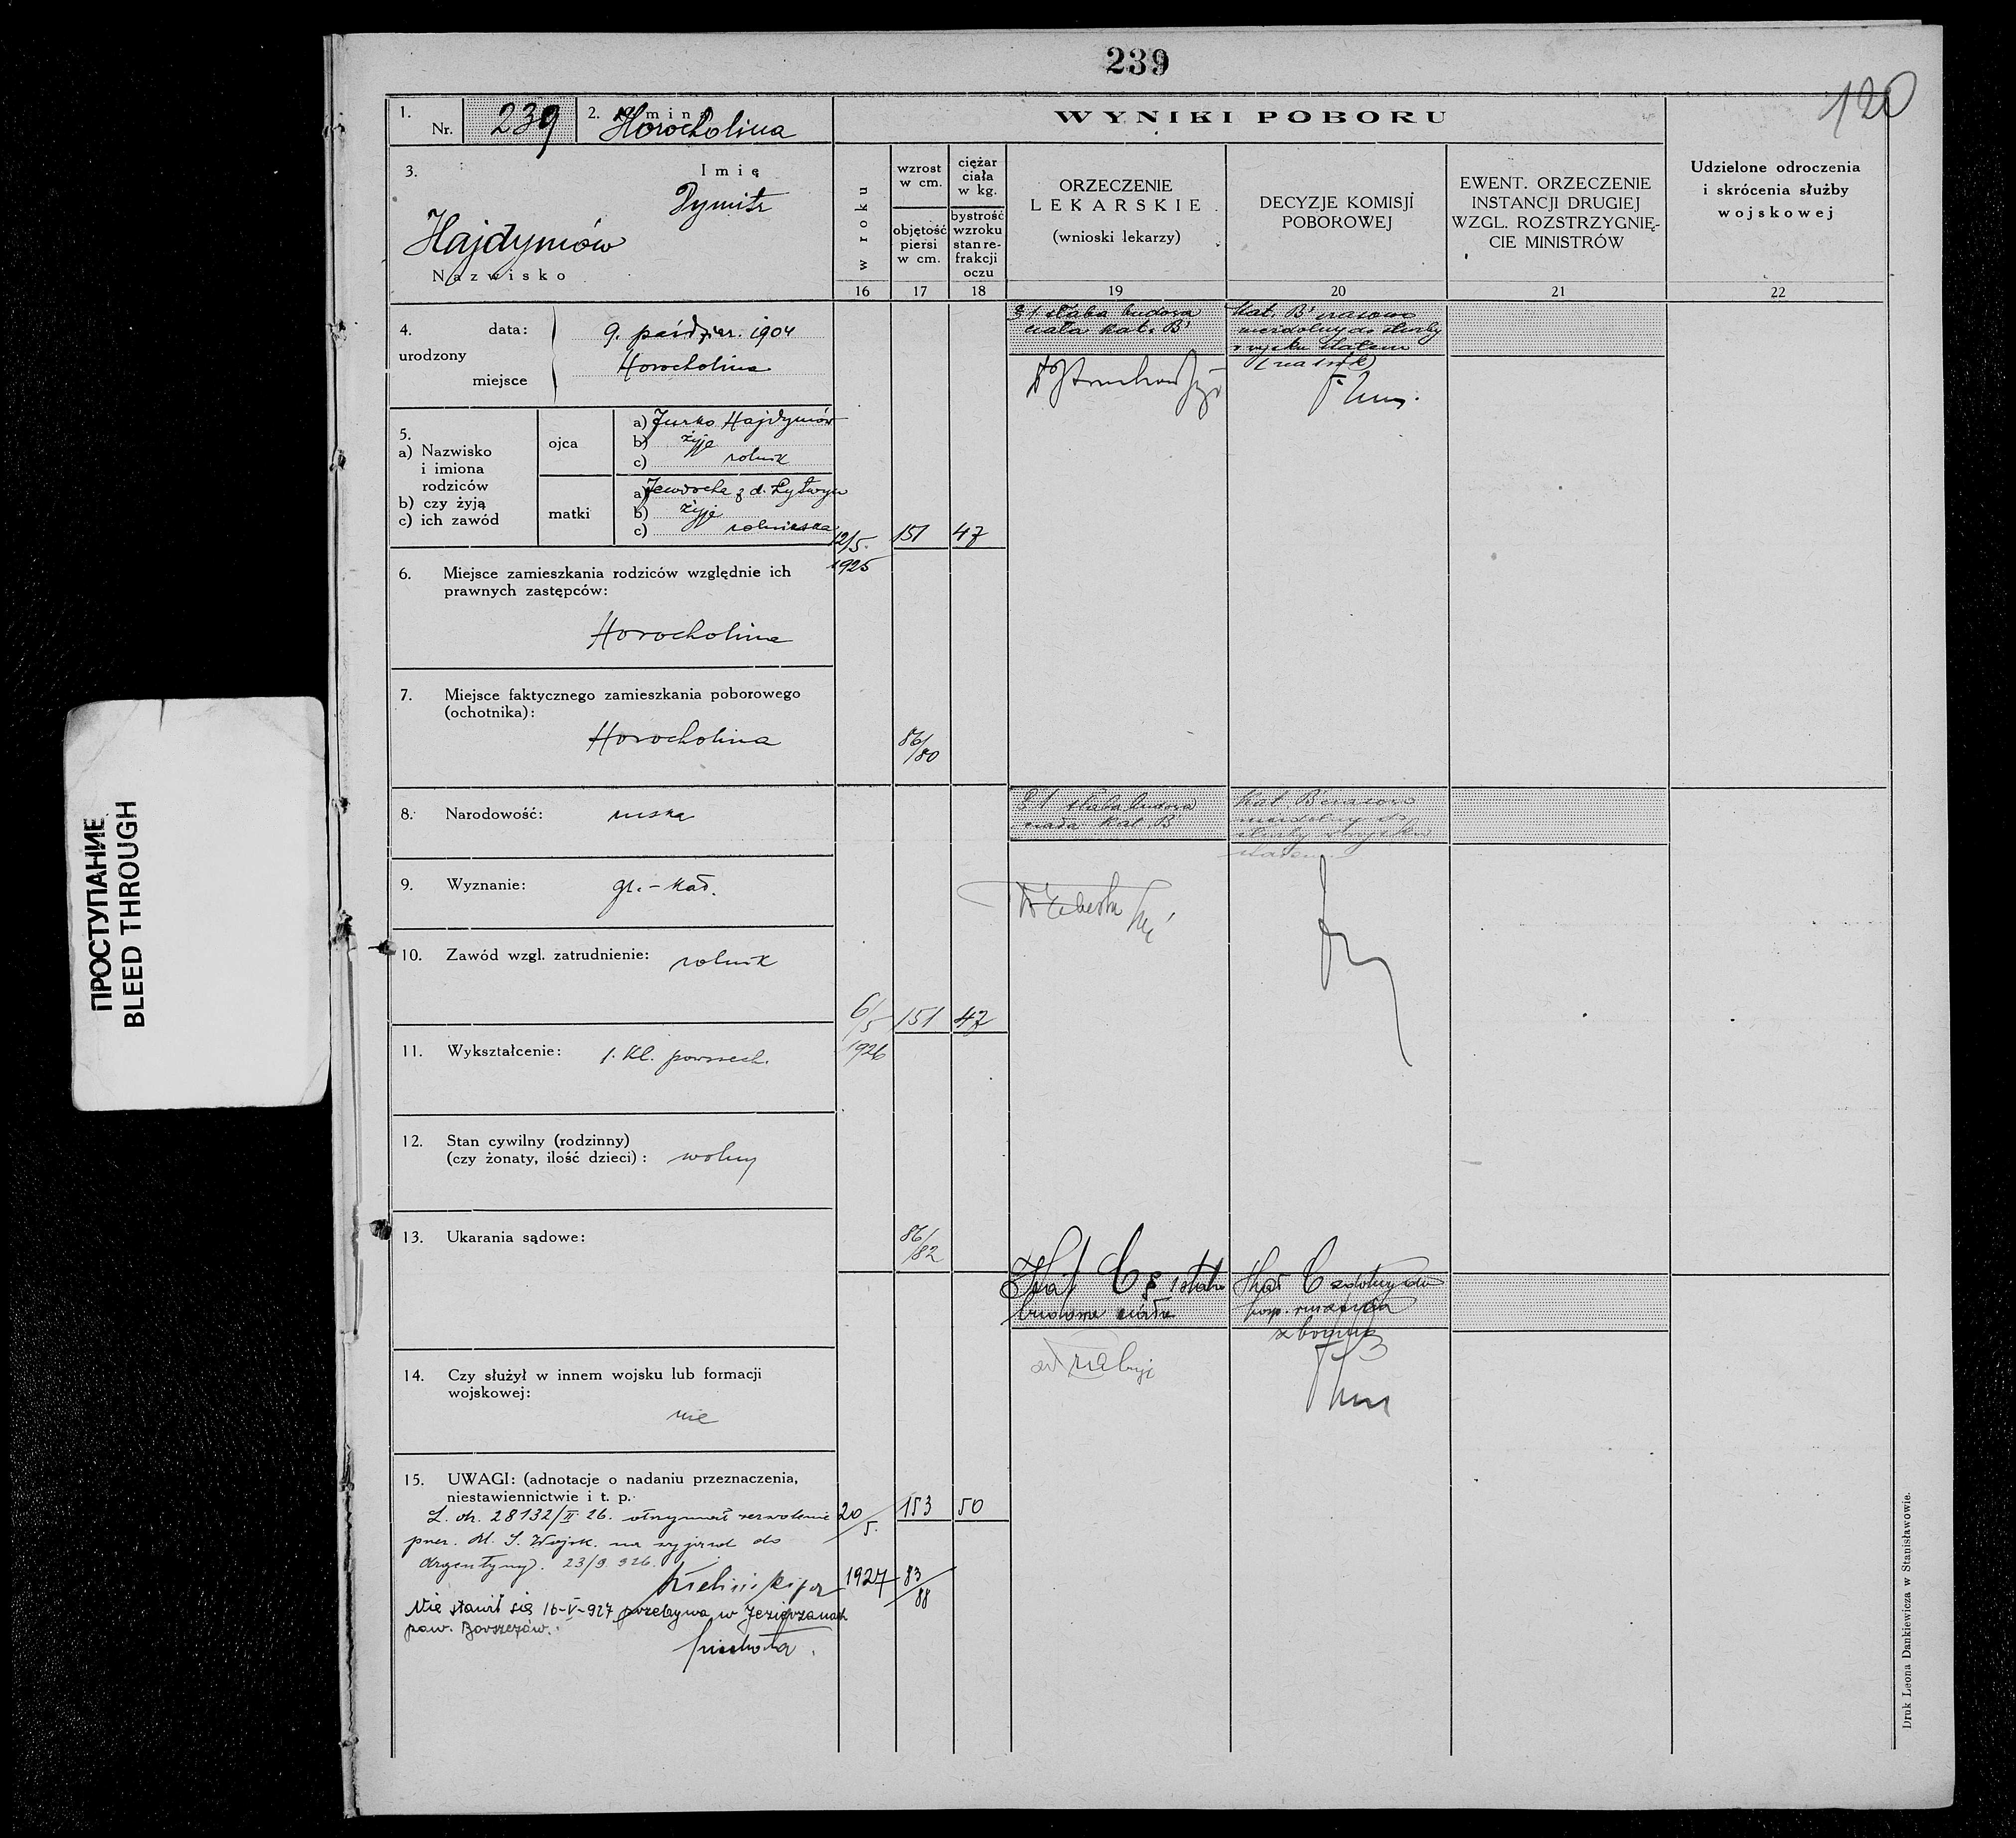 239
120
1. Nr. 239
2. Gmina Horocholina
WYNIKI POBORU
3. Imię
Dymitr
Hajdymów
Nazwisko
w roku
wzrost w cm.
objętość piersi w cm.
ciężar ciała w kg.
bystrość wzroku stan re-frakcji oczu
ORZECZENIE
LEKARSKIE
(wnioski lekarzy)
DECYZJE KOMISJI
POBOROWEJ
EWENT. ORZECZENIE
INSTANCJI DRUGIEJ
WZGL. ROZSTRZYGNIĘ-
CIE MINISTRÓW
Udzielone odroczenia
i skrócenia służby
wojskowej
16 17 18 19 20 21 22
4. urodzony
data: 9. paździer. 1904
miejsce Horocholina
5.
a) Nazwisko
i imiona
rodziców
b) czy żyją
c) ich zawód
ojca
a) Jurko Hajdymów
b) żyje
c) rolnik
matki
a) Jewdocha z d. Łytwyn
b) żyje
c) rolniczka
6. Miejsce zamieszkania rodziców względnie ich
prawnych zastępców:
Horocholina
7. Miejsce faktycznego zamieszkania poborowego
(ochotnika):
Horocholina
8. Narodowość: ruska
9. Wyznanie: gr.-kat.
10. Zawód wzgl. zatrudnienie: rolnik
11. Wykształcenie: 1. kl. powszech.
12. Stan cywilny (rodzinny)
(czy żonaty, ilość dzieci): wolny
13. Ukarania sądowe:
14. Czy służył w innem wojsku lub formacji
wojskowej:
nie
15. UWAGI: (adnotacje o nadaniu przeznaczenia,
niestawiennictwie i t. p.
L. 28132/II 26. otrzymał zezwolenie
przez M. S. Wojsk. na wyjazd do
Argentyny. 23/9 926.
Nie stawił się 16-V-927 przebywa w Jezierzanach
pow. Borszczów.
12/5. 1925
151 47
86/80
§ 1 słaba budowa
ciała kat. B
Kat. B czasowo
niezdolny do służby
w wojsku stałem
(na 1 rok)
6/5 1926
151 47
86/82
§ 1 słaba budowa
ciała kat. B
Kat. B czasowo
niezdolny do
służby w wojsku
stałem
20/5. 1927
153 50
83/88
Kat C § 1 słaba
budowa ciała
Kat C zdolny do
posp. ruszenia
z bronią
Druk Leona Dankiewicza w Stanisławowie.
ПРОСТУПАНИЕ
BLEED THROUGH